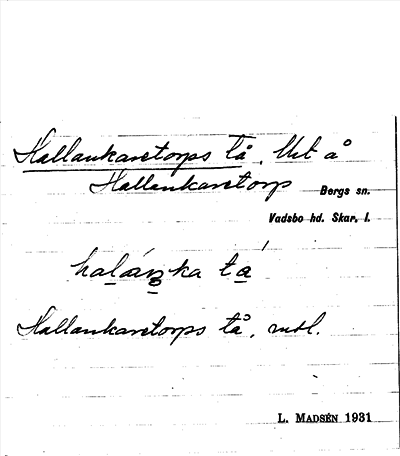 Hallankaretorps tå. Ut å
Hallankaretorp Bergs sn.
Vadsbo hd. Skar. l.
tå
Hallankaretorps tå, msl.
L. MADSÉN 1931